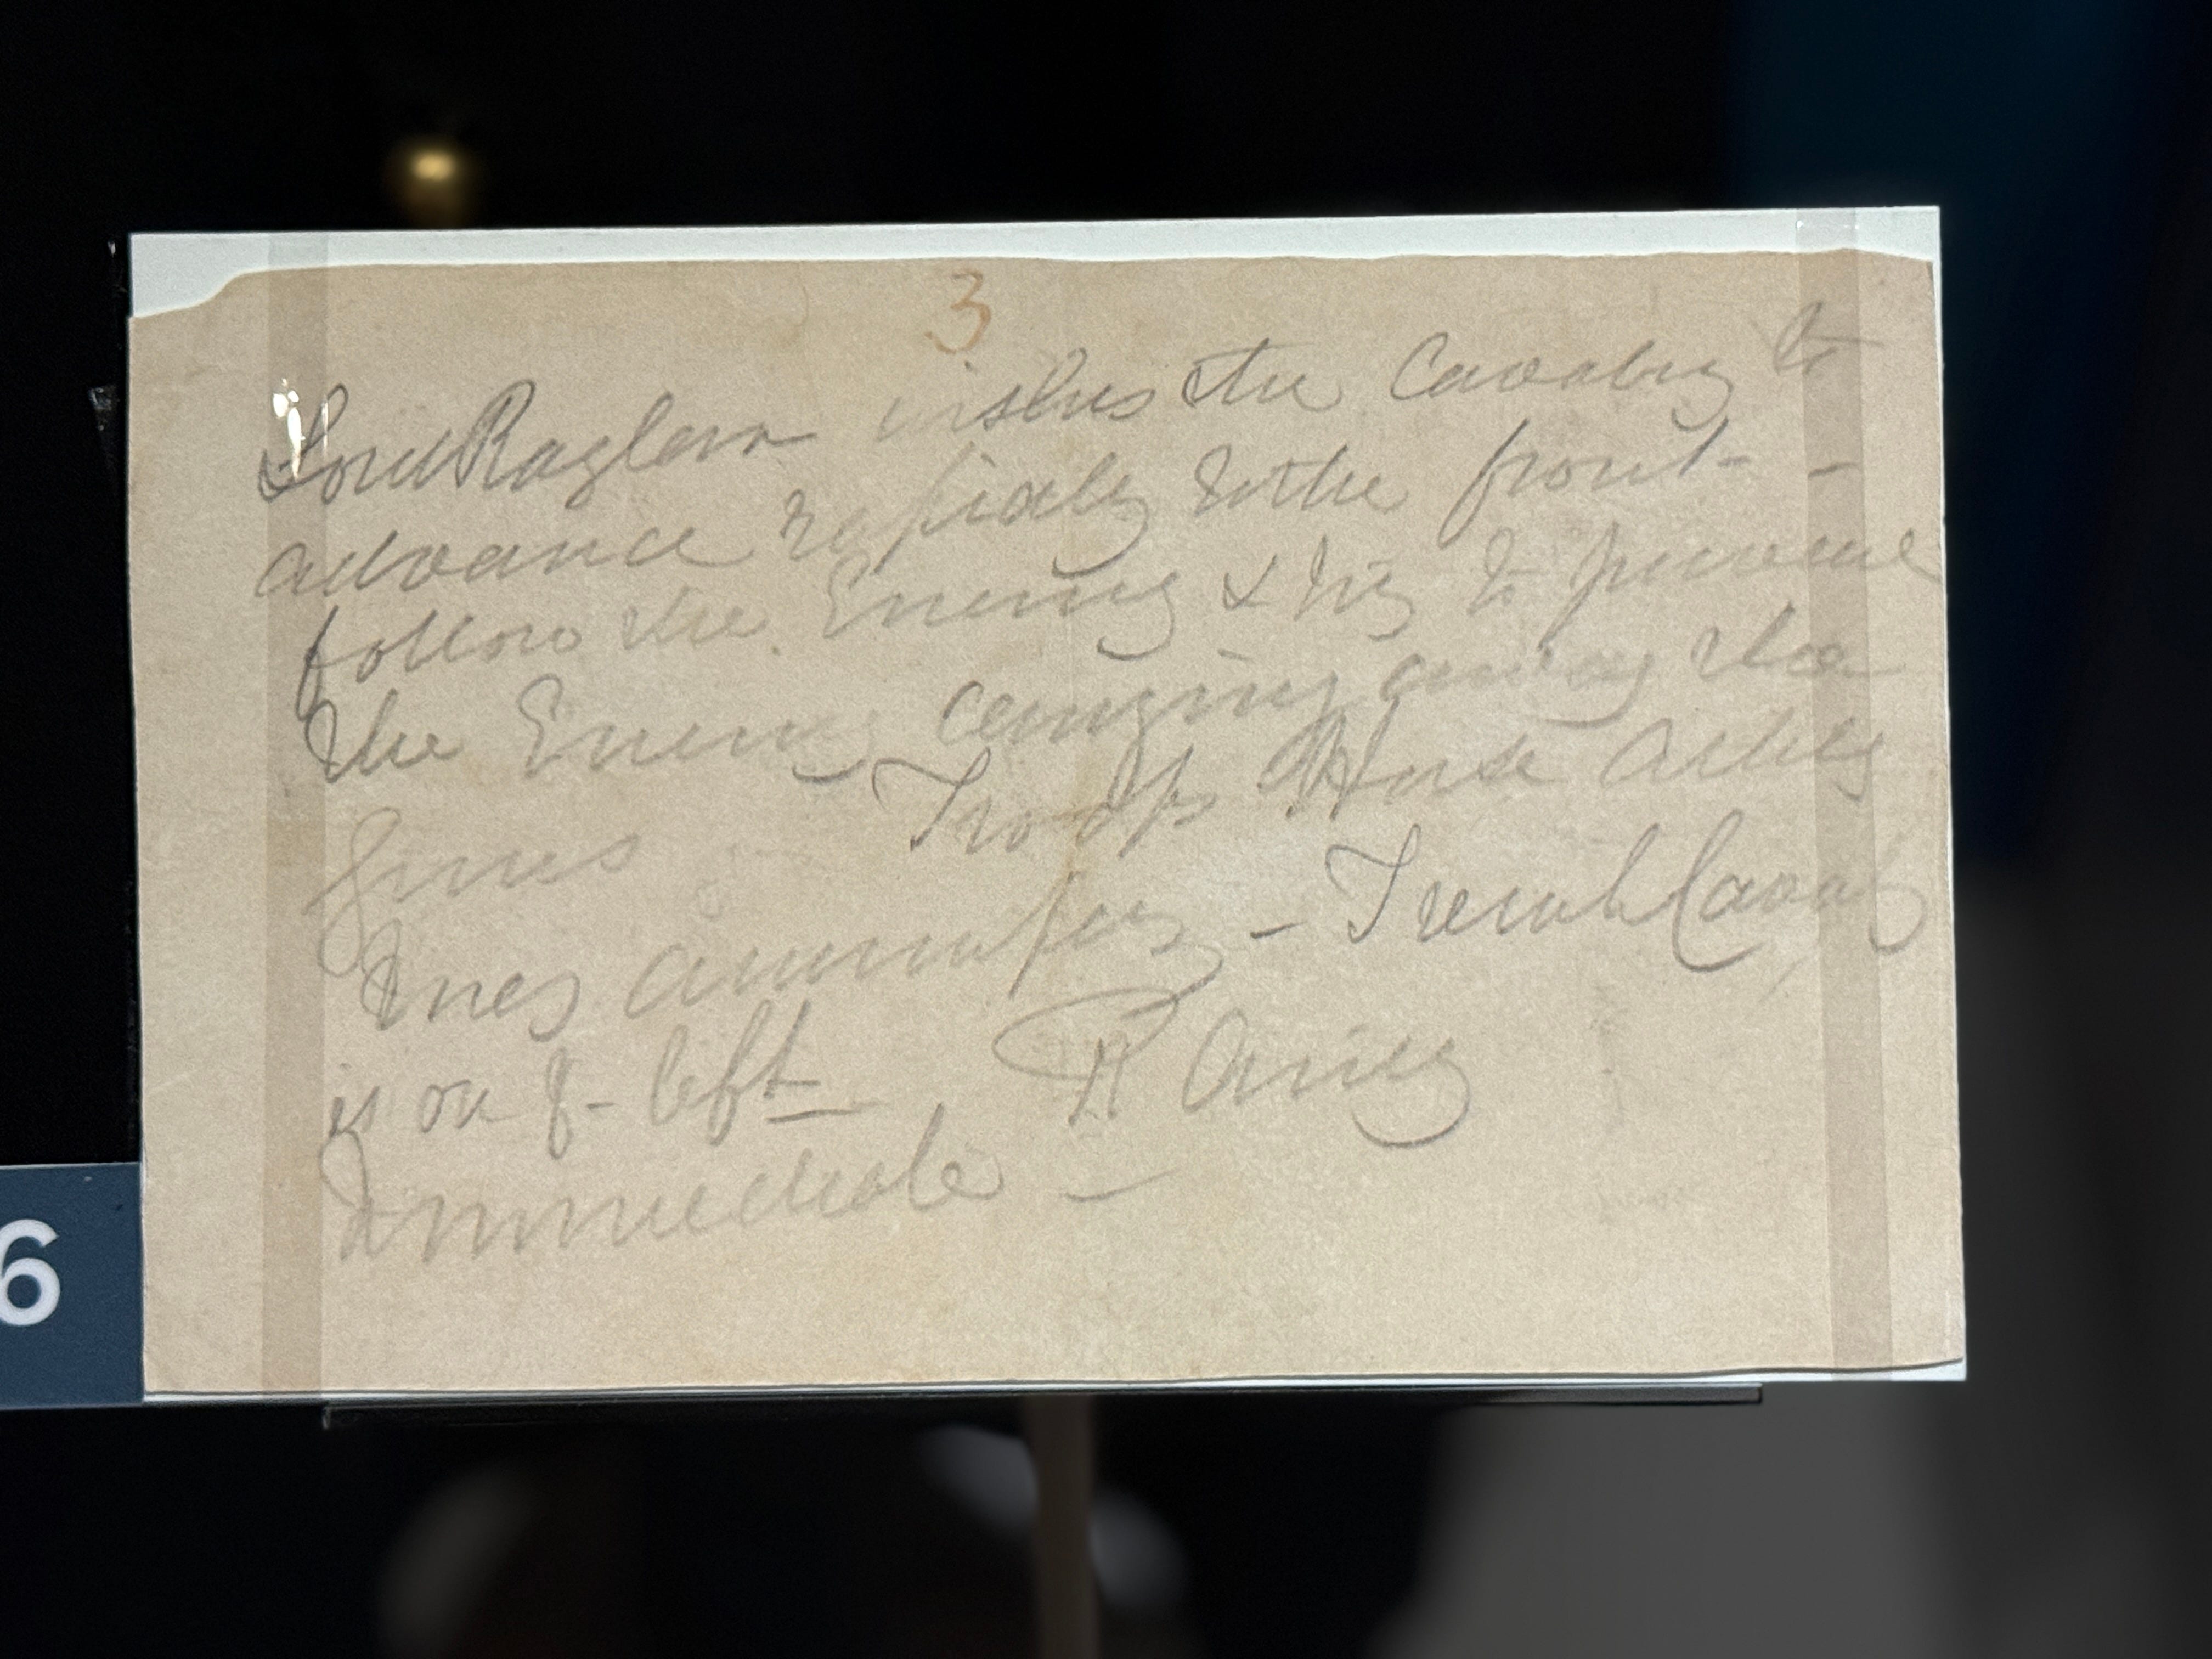 3
Lord Raglan wishes the Cavalry to
advance rapidly to the front -
follow the Enemy & try to prevent
the Enemy carrying away the
guns - Troop Horse Artily
may accompany - French Cavaly
is on yr left
R Airey
Immediate
6